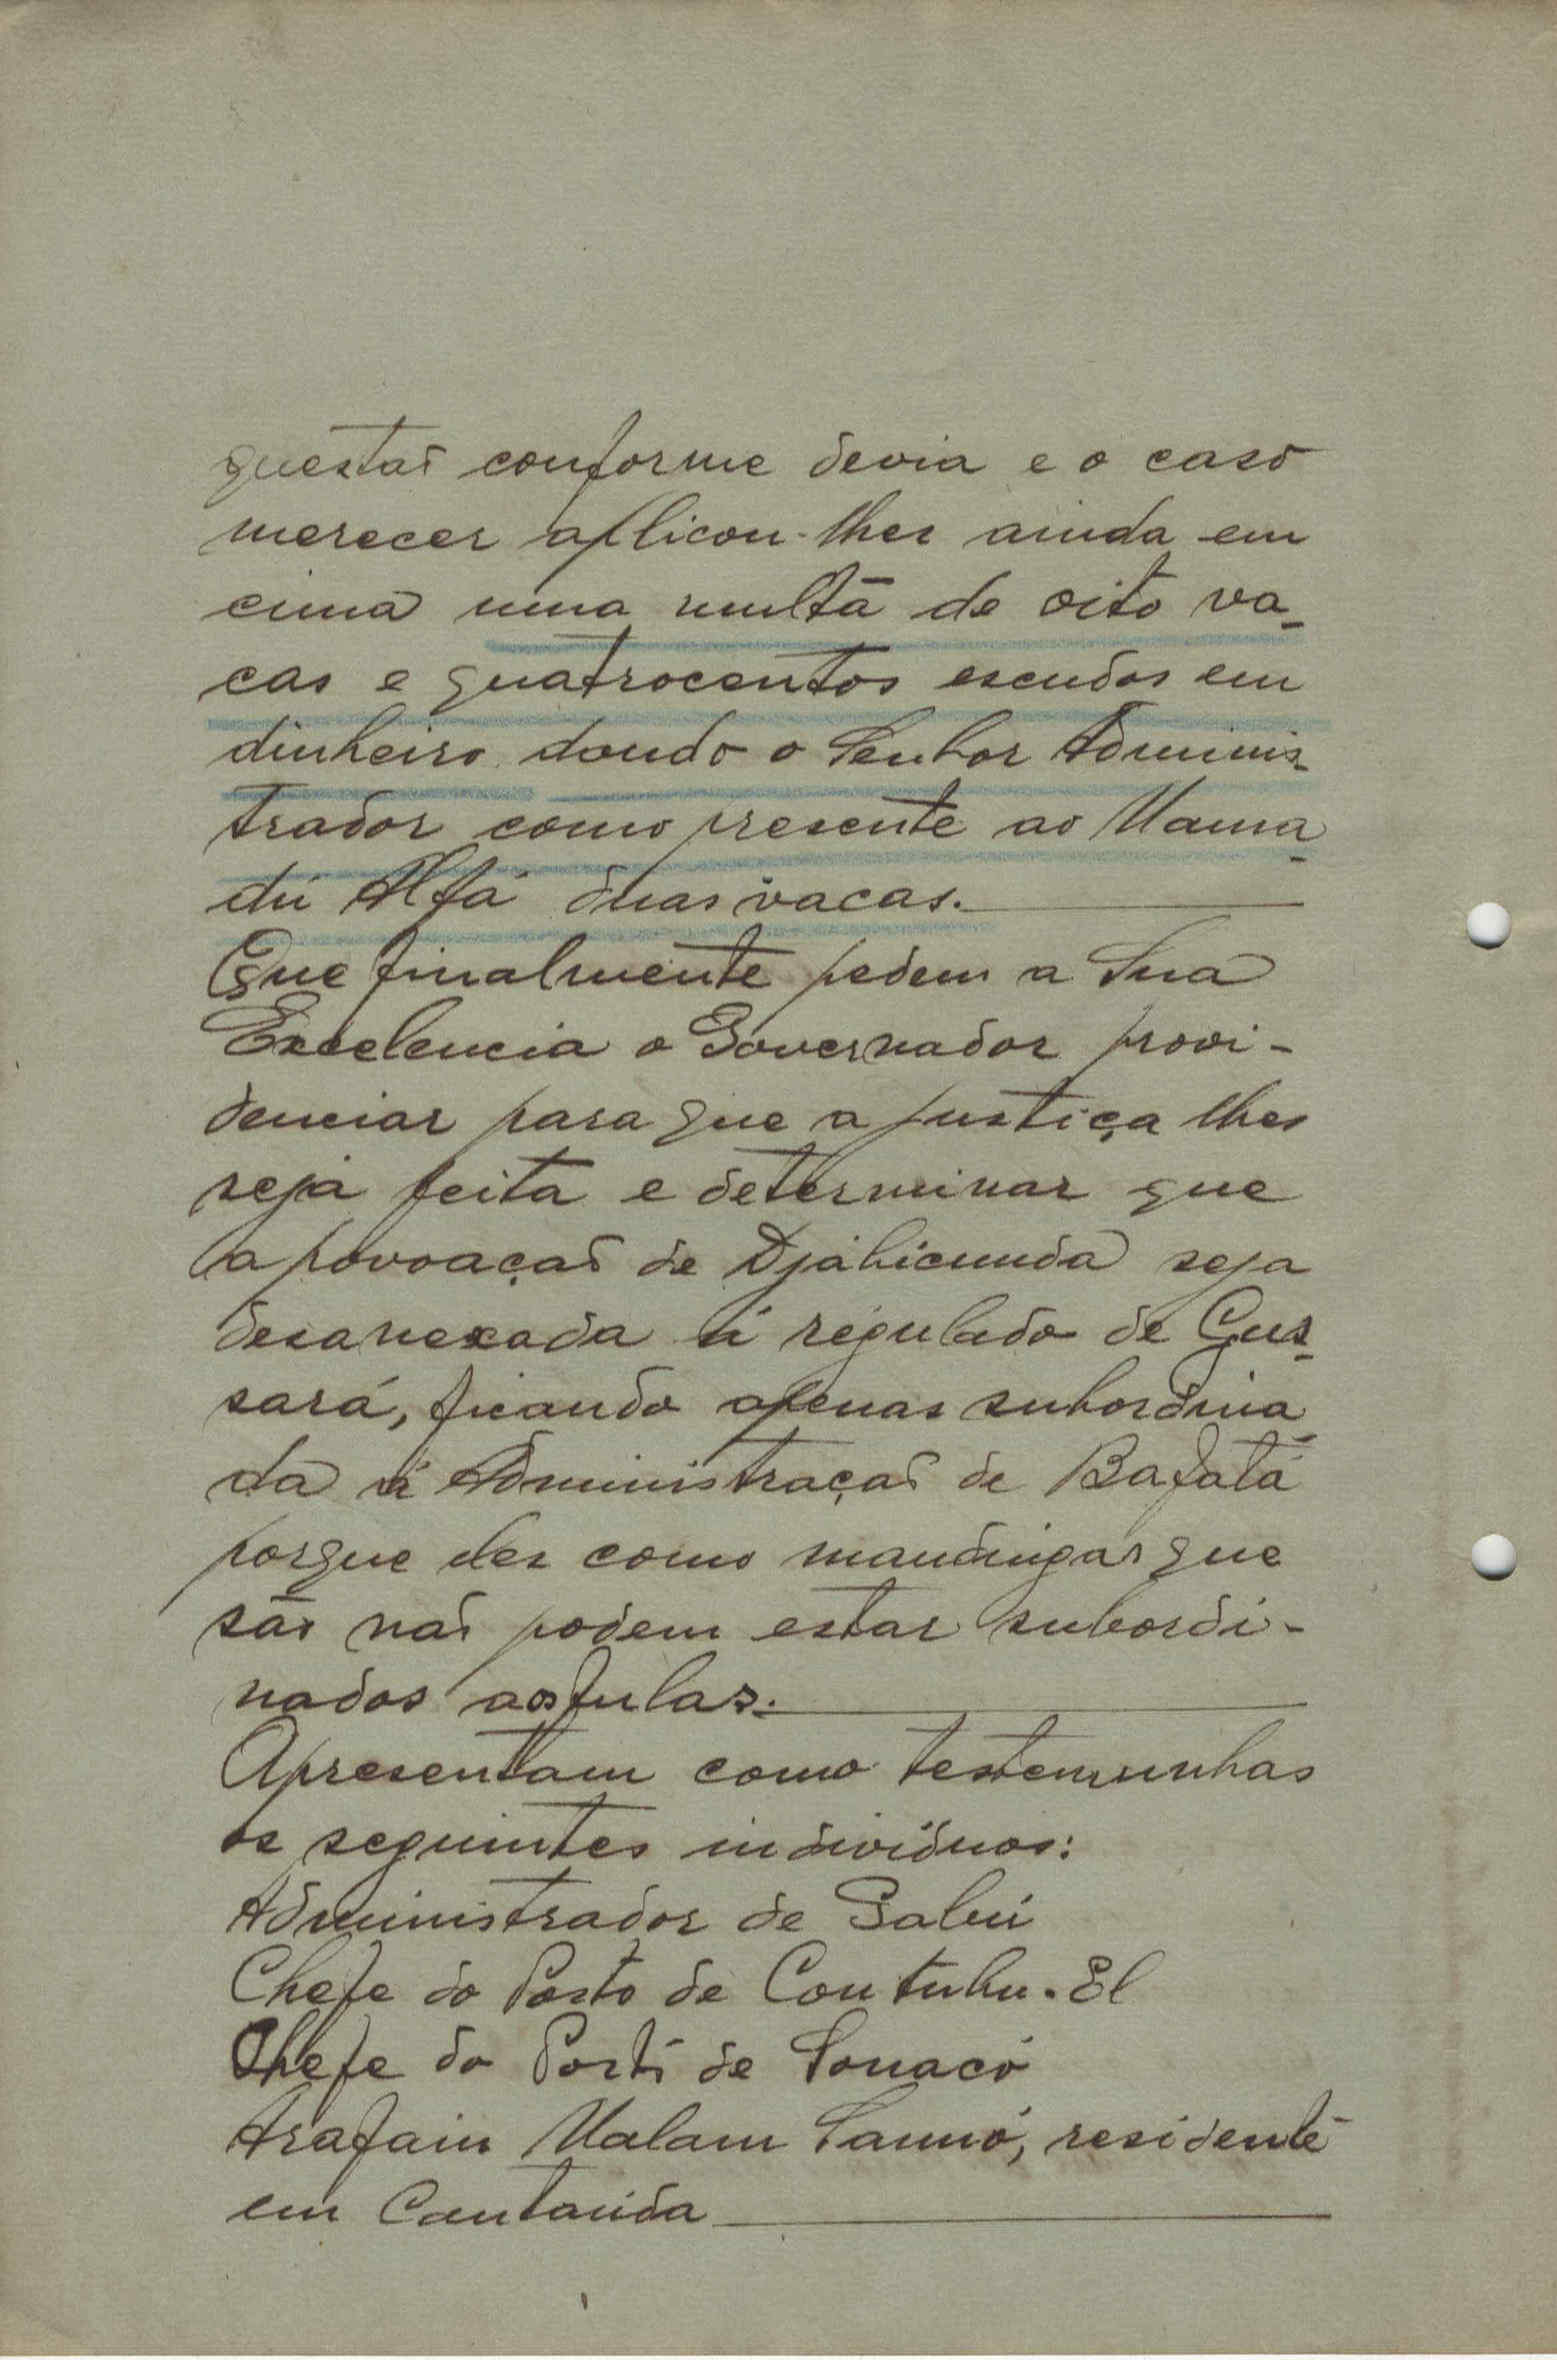 questão conforme devia e o caso
merecer aplicou-lhes ainda em
cima uma multa de oito va-
cas e quatrocentos escudos em
dinheiro dando o Senhor Adminis-
trador como presente ao Mama-
dú Alfá duas vacas.
Que finalmente pedem a Sua
Excelencia o Governador provi-
denciar para que a justiça lhes
seja feita e determinar que
a povoação de Djabicunda seja
desanexada á regulado de Gus-
sará, ficando apenas subordina-
da á Administração de Bafatá
porque eles como mandingas que
são não podem estar subordi-
nados aos fulas.
Apresentam como testemunhas
os seguintes individuos:
Administrador de Gabú
Chefe do Posto de Contubu-El
Chefe do Posto de Sonacó
Arafain Malam Sannó, residente
em Cantauda